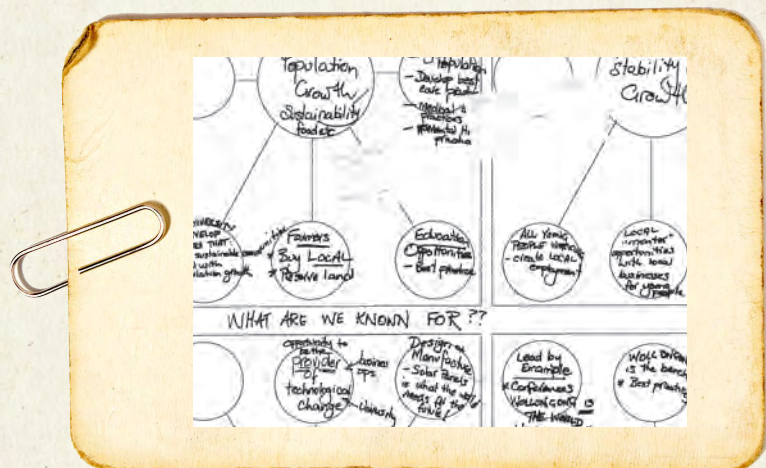 Population
Growth
Sustainability
food etc
Population
- Develop best
care
- Medical
practices
- Mental
Stability
Growth
UNIVERSITY
DEVELOP
THAT
sustainable communities
with
population growth
Farmers
* Buy LOCAL
* Reserve land
Education
Opportunities
- Best practice
ALL YOUNG
PEOPLE WORKING
- create LOCAL
employment
LOCAL
opportunities
with local
businesses
for young
people
WHAT ARE WE KNOWN FOR??
opportunity to
be the
provider
of
technological
change
business
ops
University
Design &
Manufacture
- Solar Panels
is what the world
needs for the
future!
Lead by
Example
* Conferences
WOLLONGONG IS
THE WORLD
WOLLONGONG
is the bench
* Best practice